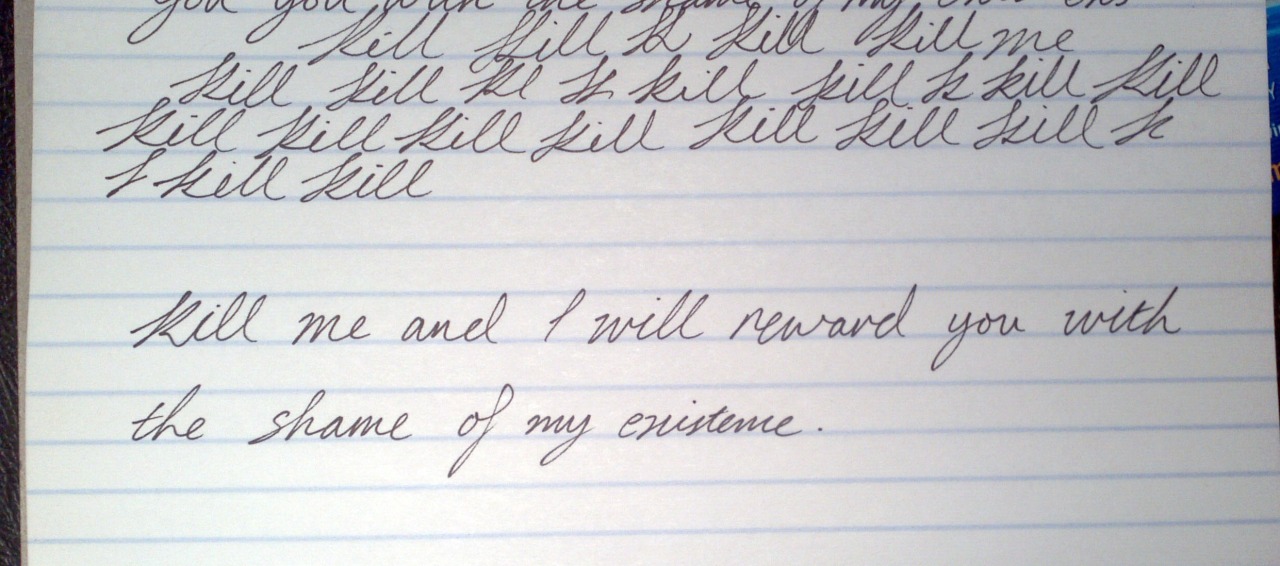 you you with the shame of my
kill kill k kill kill me
kill kill kl k kill kill k kill kill
kill kill kill kill kill kill kill k
I kill kill
kill me and I will reward you with
the shame of my existence.